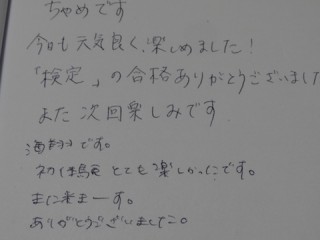 ちゃめです
今日も元気良く、楽しめました!
「検定」の合格ありがとうございました
また次回楽しみです
です。
とても楽しかったです。
また来まーす。
ありがとうございました。